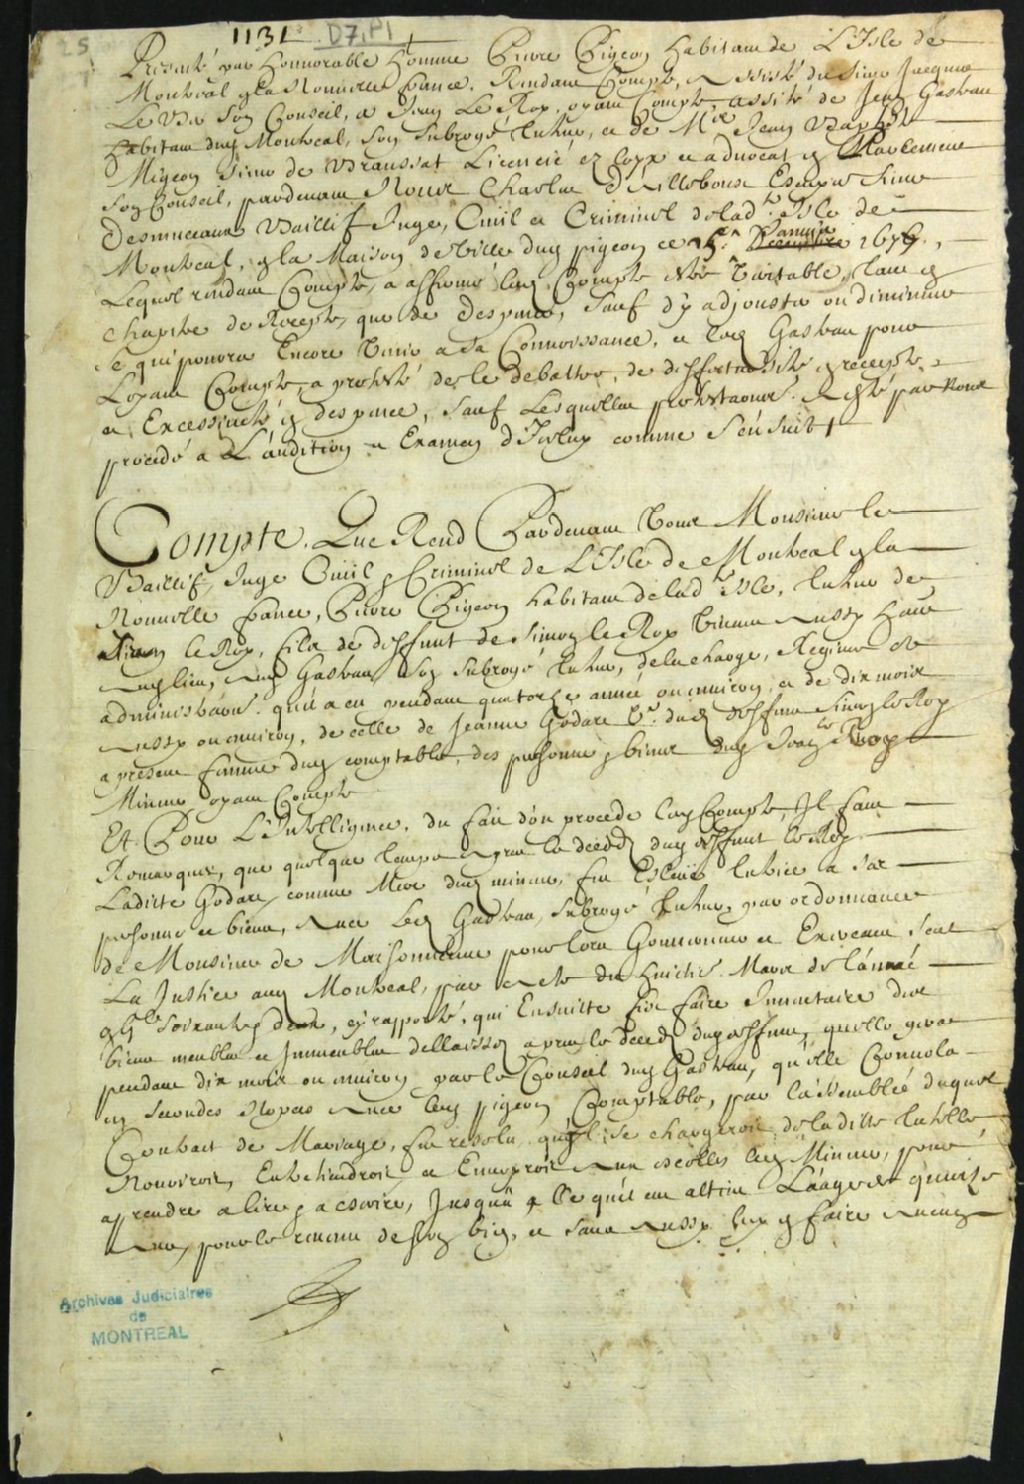 25
1131 D7, P1
Presenté par Honnorable Homme Pierre Pigeon habitant de L'Isle de
Montreal en la Nouvelle France, Rendant Compte, assisté du sieur Jacques
Le Ber son Conseil, a Jean Le Roy, oyant Compte assisté de Jean Gasteau
habitant dud Montreal, son subrogé tuteur, et de Mre Jean Baptiste
Migeon sieur de Branssat Licencié ez loix et advocat en Parlement
son Conseil, pardevant Nous Charles D'Ailleboust Escuyer sieur
Desmuceaux Baillif Juge, Civil et Criminel de lad. Isle de
Montreal, en la Maison de Ville dud pigeon ce Janvier 1676,
Lequel rendant Compte, a affirmé led. Compte estre veritable, tant en
chapitre de Recepte, que de Despence, sauf d'y adjouster ou diminuer
ce qui pourra Encore venir a sa Connoissance, et led Gasteau pour
L'oyant Compte, a protesté de le debattre, de deffectuosité en recepte,
et Excessiveté en despence, sauf lesquelles protestaons. a esté par Nous
procedé a L'audition et Examen d'Iceluy comme s'ensuit
Compte. Que Rend Pardevant Vous Monsieur le
Baillif, Juge Civil et Criminel de L'Isle de Montreal en la
Nouvelle France, Pierre Pigeon habitant de lad. Isle, tuteur de
Jean le Roy, fils de deffunt de Simon le Roy vivant aussy hant
aud lieu, aud Gasteau son subrogé tuteur, de la charge, Regime et
administraon. qu'il a eu pendant quatorze année ou environ, et de dix mois
aussy ou environ, de celle de Jeanne Godart Ve. dud deffunt Simon le Roy
a present femme dud comptable, des personne et biens dud Jean le Roy
Mineur oyant Compte
Et Pour L'Intelligence, du fait d'ou procede led Compte, Il faut
Remarquer, que quelque temps apres le deceds dud deffunt le Roy
Ladicte Godart, comme Mere dud mineur, fut Esleüe tutrice a sa
personne et biens, avec led Gasteau, subrogé tuteur, par ordonnance
de Monsieur de Maisonneufve pour lors Gouverneur et Exerceant
La Justice aud Montreal, par acte du huictie. Mars de l'année
gbic Soixante deux, cy rapporté, qui Ensuitte fist faire Inventaire des
biens meubles et Immeubles dellaissez apres le deceds dud deffunt, quelle gera
pendant dix mois ou environ par le Conseil dud Gasteau, qu'elle Convola
en secondes Nopces avec led pigeon Comptable, par l'assemblée duquel
Contract de Mariage, fut resolu, qu'il se chargeroit de ladite tutelle,
Nouriroit, Entretiendroit et Envoyroit aux escolles led Mineur, pour
apprendre a lire et a escrire, Jusqu'a ce qu'il eut attint L'aage de quinze
ans, pour le revenu de son bien, et sans aussy luy en faire aucun
Archives Judiciaires
de
MONTREAL